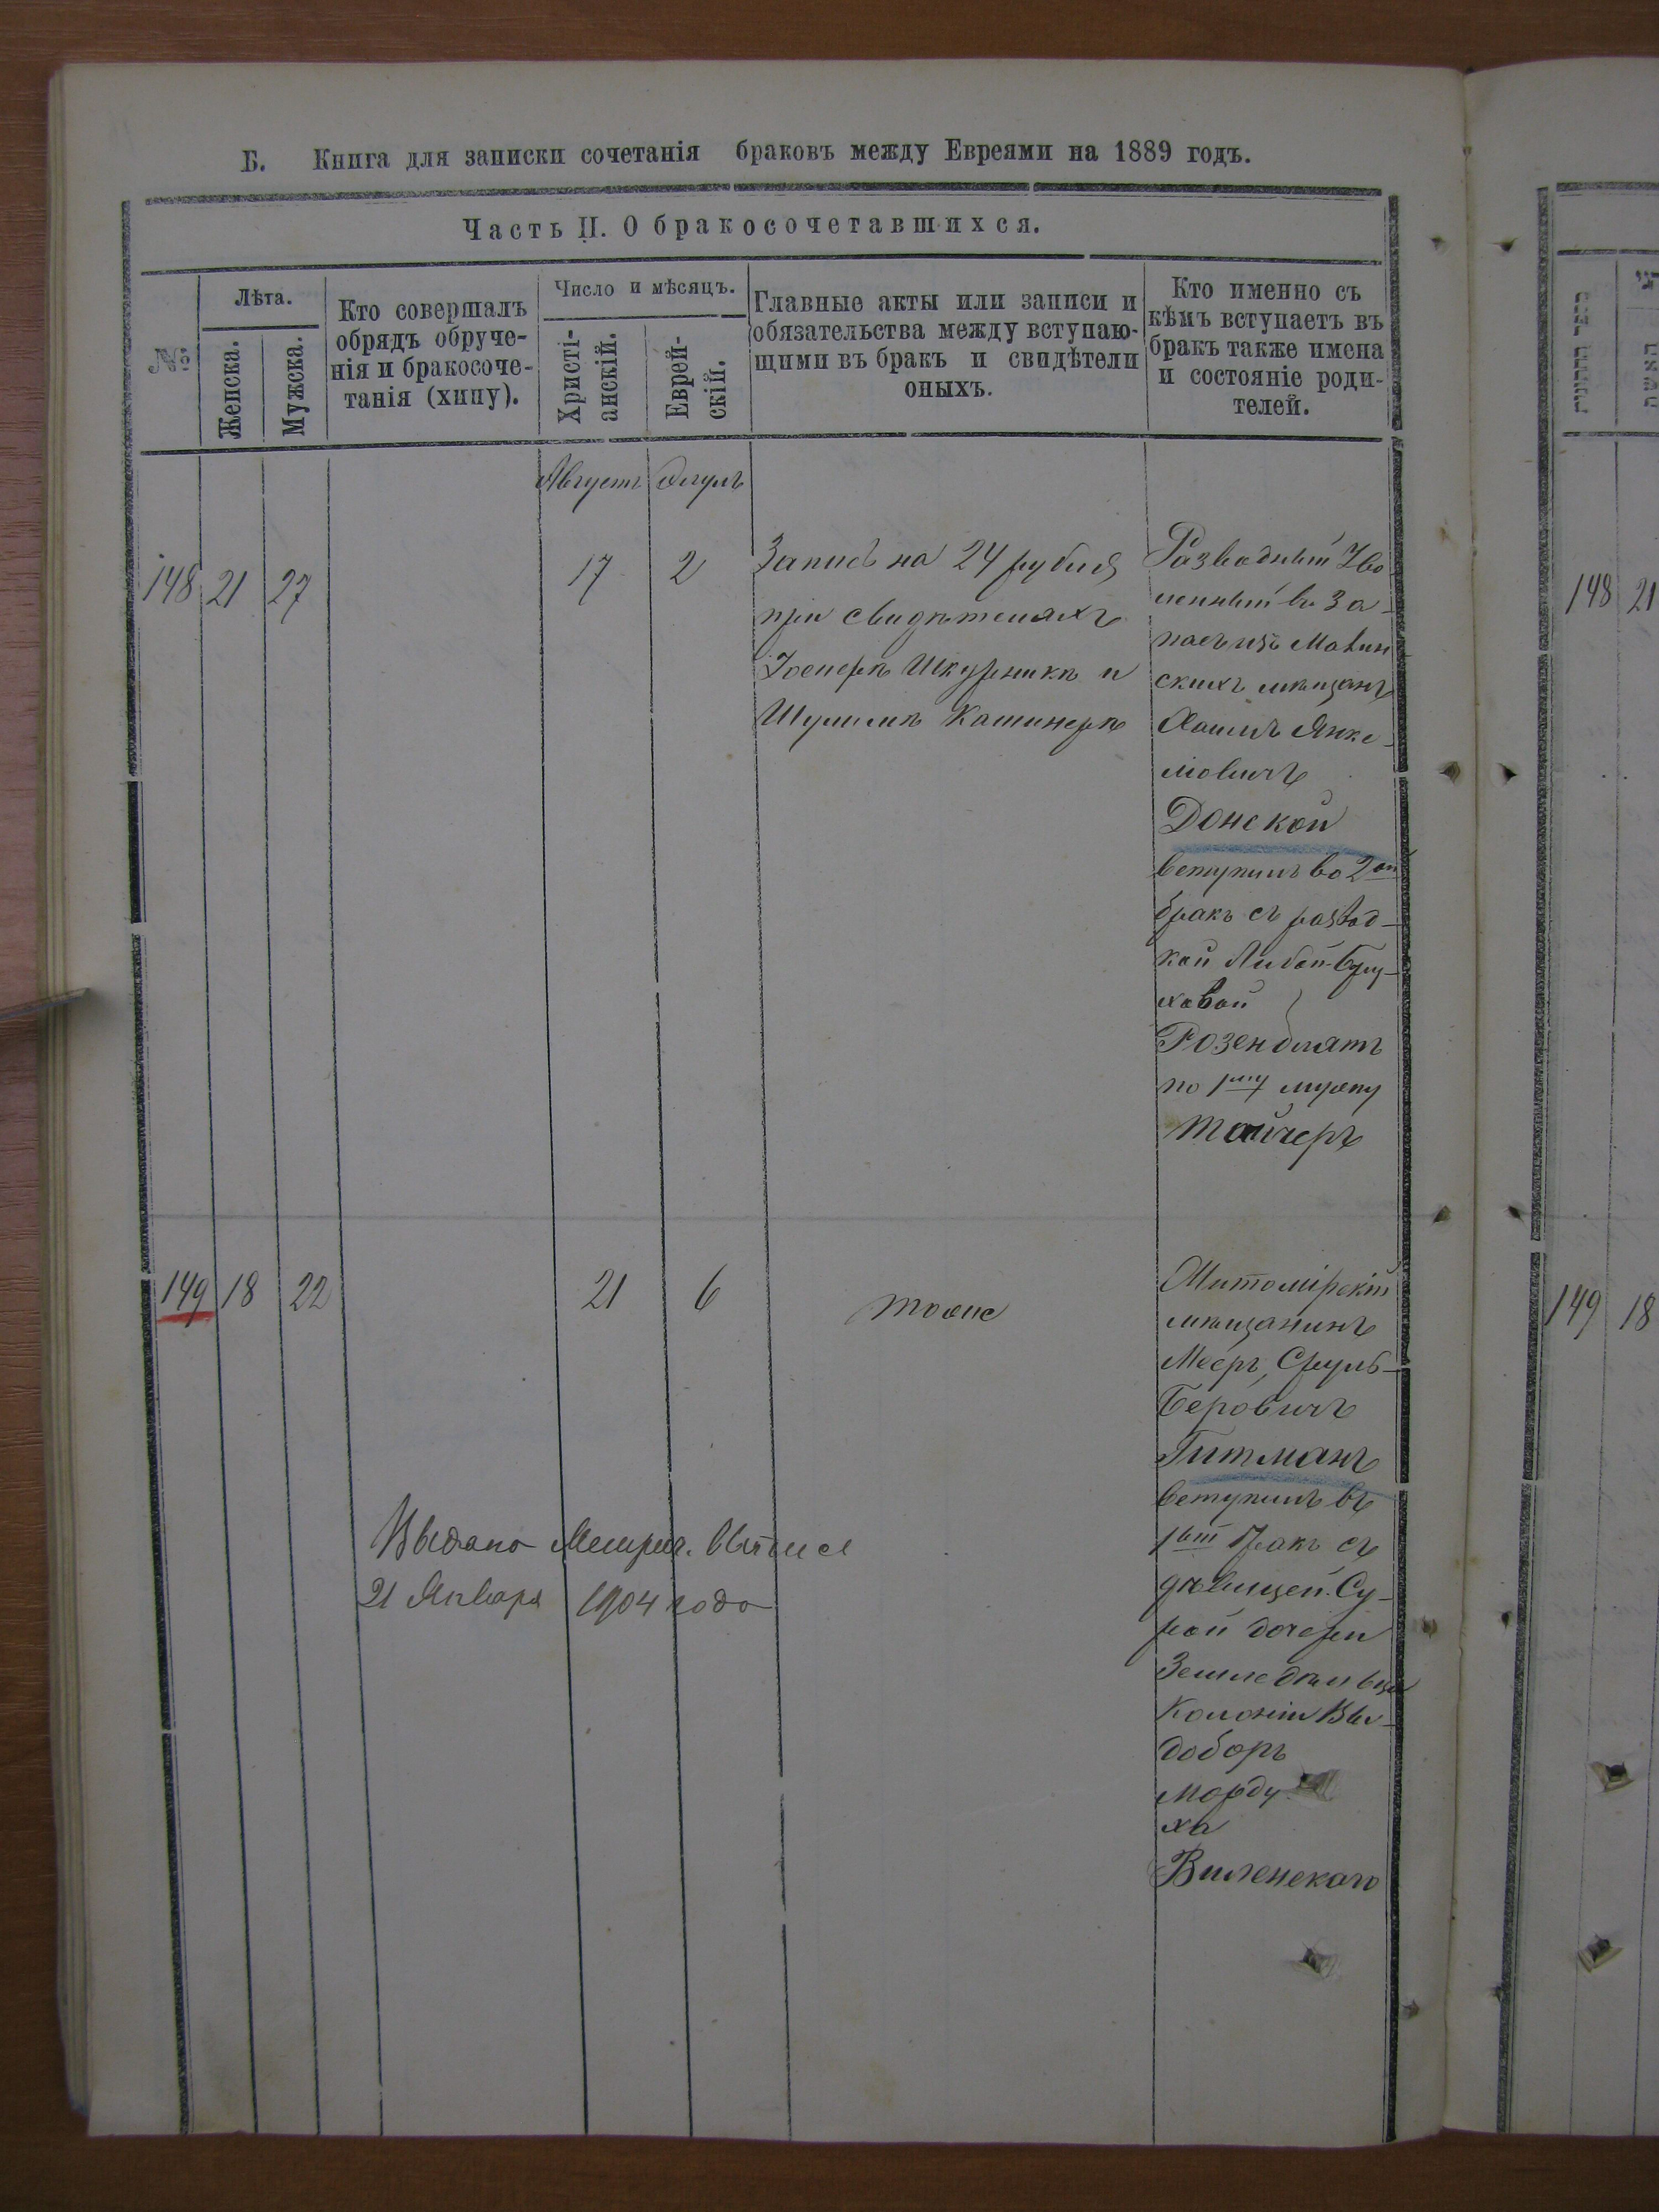 Б. Книга для записки сочетанія браковъ между Евреями на 1889 годъ.
Часть II. О бракосочетавшихся.
№
Лѣта.
Женска.
Мужска.
Кто совершалъ
обрядъ обруче-
нія и бракосоче-
танія (хипу).
Число и мѣсяцъ.
Христі-
анскій.
Еврей-
скій.
Главные акты или записи и
обязательства между вступаю-
щими въ бракъ и свидѣтели
оныхъ.
Кто именно съ
кѣмъ вступаетъ въ
бракъ также имена
и состояніе роди-
телей.
Августъ Элулъ
148 21 27 17 2
Запись на 24 рубля
при свидѣтеляхъ
Іосифѣ Шкурникѣ и
Шулимѣ
Разводный Уво
ленный въ За-
пасъ изъ
скихъ мѣщанъ
Хаимъ Янке-
лювичъ
Донской
вступилъ во 2ой
бракъ съ развод-
кой Либой-Бру-
ховой
Розенблятъ
по 1му мужу
Тайчеръ
149 18 22 21 6
тоже
Житомірскій
мѣщанинъ
Мееръ, Сруль-
Беровичъ
Гитманъ
вступилъ въ
1ый бракъ съ
дѣвицей Су-
рой дочери
Земледѣльца
Колоніи Вы-
доборъ
Морду
ха
Виленскаго
Выдано Метрич. выпись
21 Января 1904 года
148 21
149 18